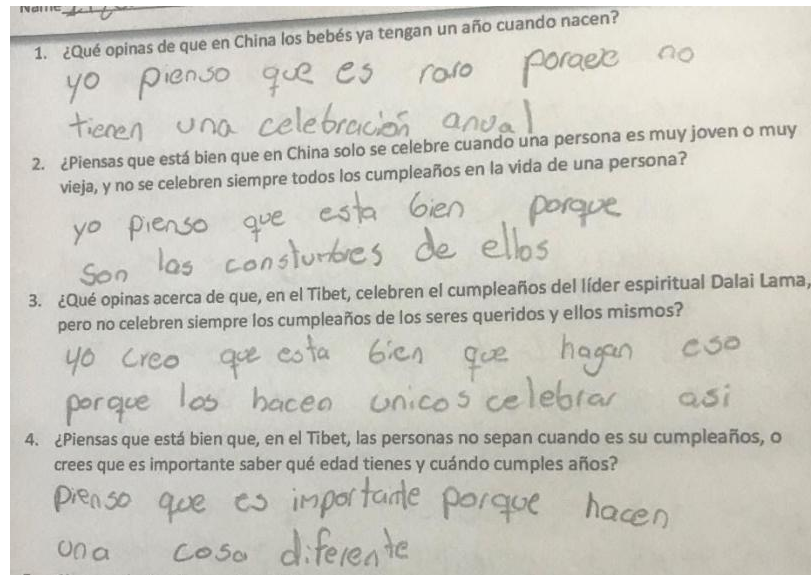 Name
1. ¿Qué opinas de que en China los bebés ya tengan un año cuando nacen?
yo pienso que es raro porque no
tienen una celebración anual
2. ¿Piensas que está bien que en China solo se celebre cuando una persona es muy joven o muy
vieja, y no se celebren siempre todos los cumpleaños en la vida de una persona?
yo pienso que esta bien porque
son las consturbres de ellos
3. ¿Qué opinas acerca de que, en el Tibet, celebren el cumpleaños del líder espiritual Dalai Lama,
pero no celebren siempre los cumpleaños de los seres queridos y ellos mismos?
yo creo que esta bien que hagan eso
porque los hacen unicos celebrar asi
4. ¿Piensas que está bien que, en el Tibet, las personas no sepan cuando es su cumpleaños, o
crees que es importante saber qué edad tienes y cuándo cumples años?
Pienso que es importante porque hacen
una cosa diferente